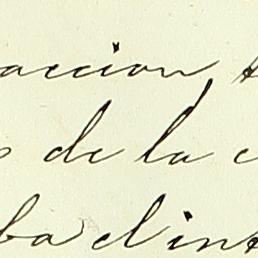 accion,
de la
ba el int